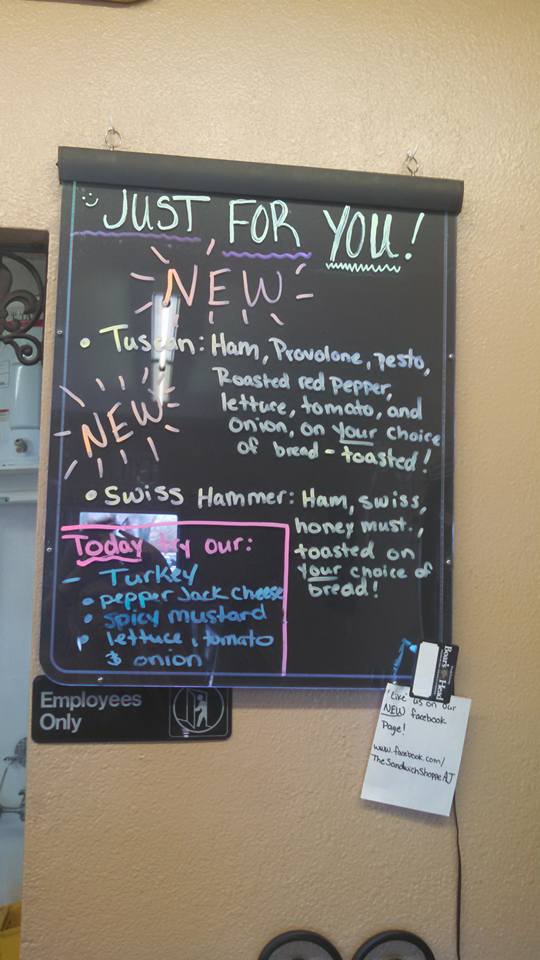 JUST FOR YOU!
NEW
• Tuscan: Ham, Provolone, pesto,
Roasted red pepper,
lettuce, tomato, and
onion, on your choice
of bread - toasted!
NEW
• Swiss Hammer: Ham, swiss,
honey must.,
toasted on
your choice of
bread!
Today try our:
- Turkey
• pepper Jack cheese
• spicy mustard
• lettuce, tomato
& onion
Employees
Only
Boar's Head
"Like" us on our
NEW facebook
Page!
www.facebook.com/
TheSandwichShoppeAJ